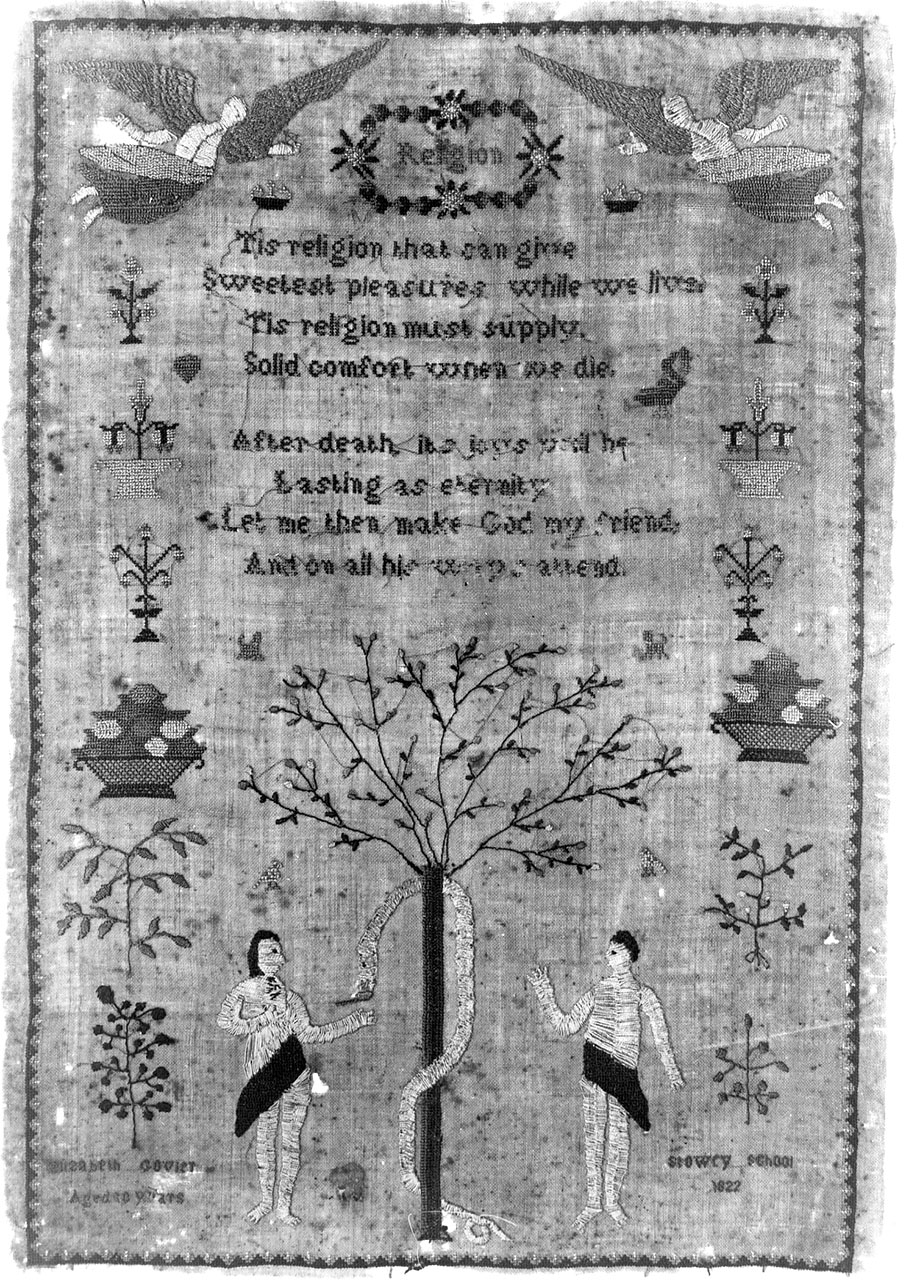 Religion
Tis religion that can give
Sweetest pleasures while we live.
Tis religion must supply.
Solid comfort when we die.
After death, its joys will be
Lasting as eternity
Let me then make God my friend,
And on all his ways attend.
Elizabeth Govier
Aged 10 Years
Stowey School
1822